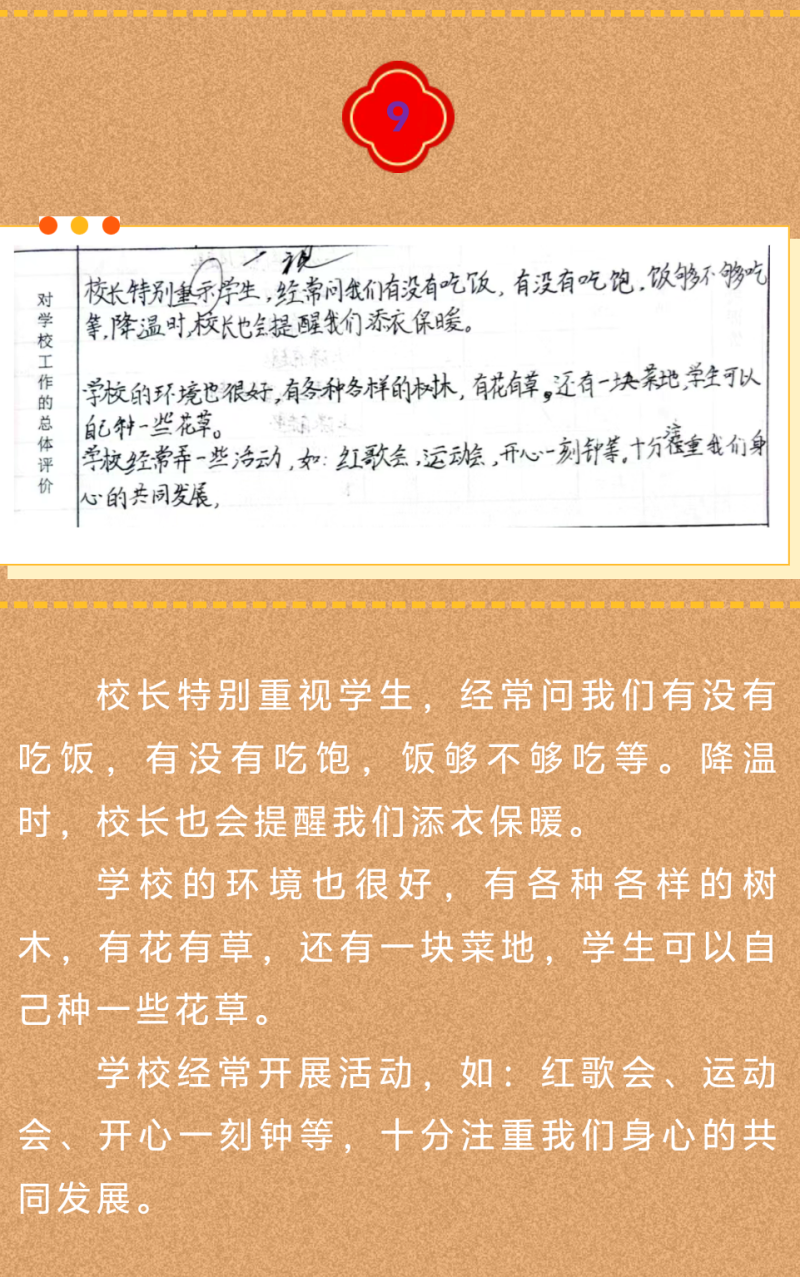 9
对学校工作的总体评价
视
校长特别重示学生,经常问我们有没有吃饭,有没有吃饱,饭够不够吃
等,降温时,校长也会提醒我们添衣保暖。
学校的环境也很好,有各种各样的树木,有花有草。还有一块菜地,学生可以
自己种一些花草。
学校经常弄一些活动,如:红歌会,运动会,开心一刻钟等。十分注重我们身
心的共同发展,
校长特别重视学生,经常问我们有没有
吃饭,有没有吃饱,饭够不够吃等。降温
时,校长也会提醒我们添衣保暖。
学校的环境也很好,有各种各样的树
木,有花有草,还有一块菜地,学生可以自
己种一些花草。
学校经常开展活动,如:红歌会、运动
会、开心一刻钟等,十分注重我们身心的共
同发展。